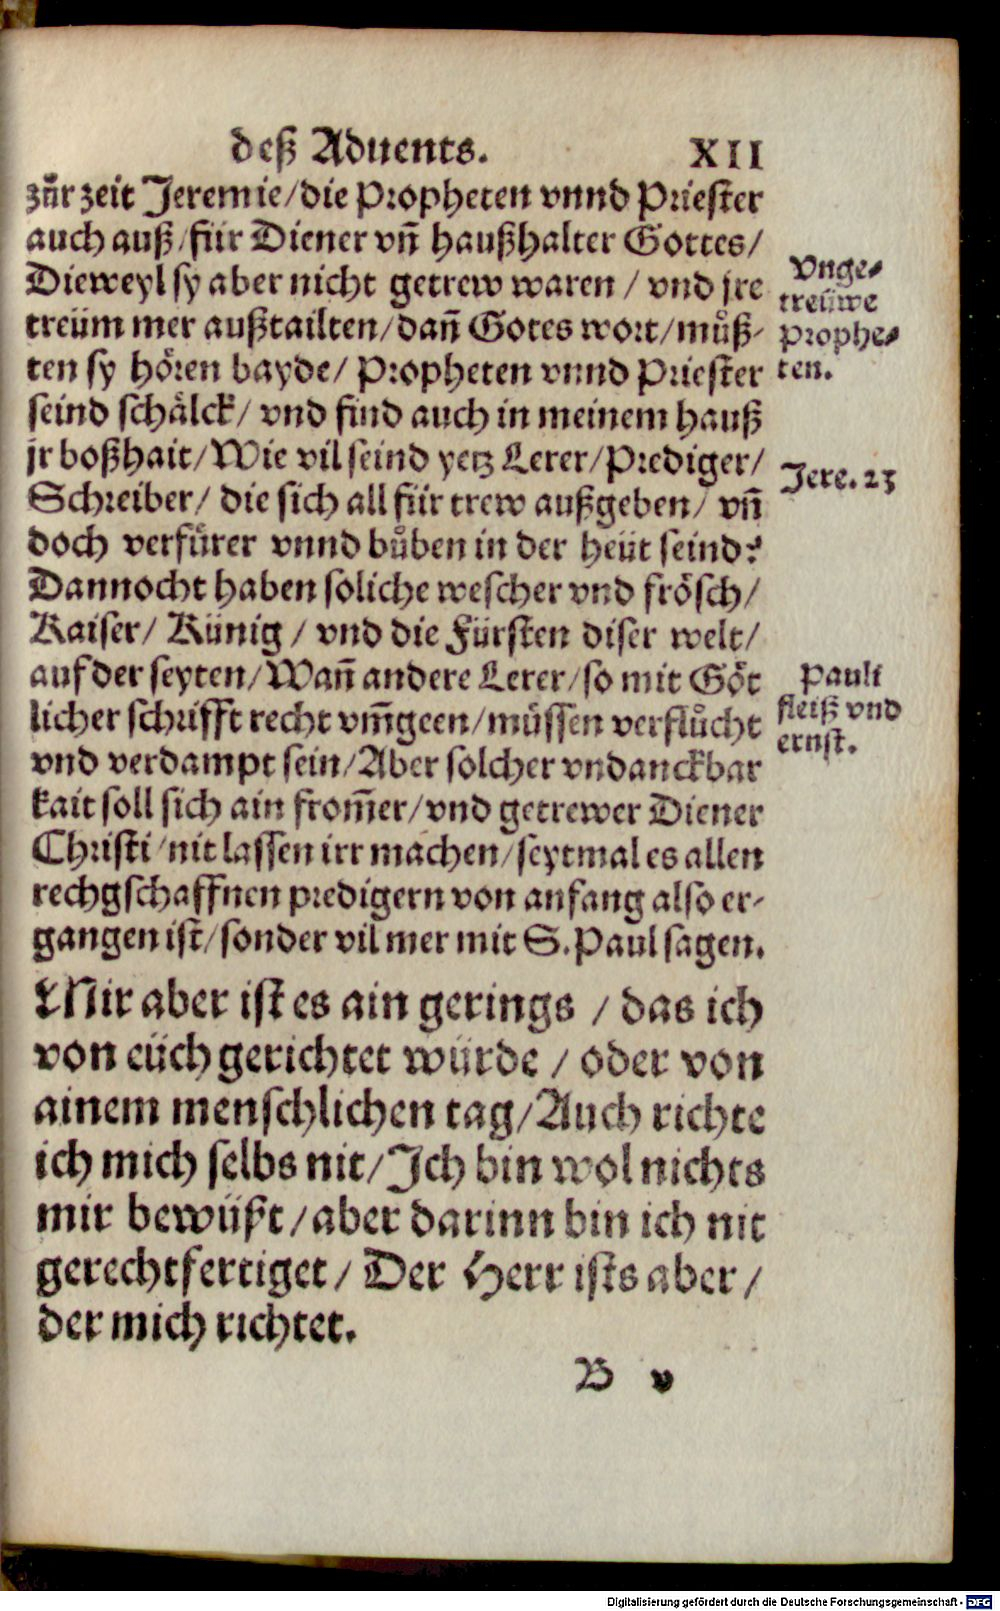 deß Aduents. XII
zůr zeit Jeremie/die Propheten vnnd Priester
auch auß/für Diener vñ haußhalter Gottes/
Dieweyl sy aber nicht getrew waren / vnd jre
treüm mer außtailten/dañ Gotes wort/můß-
ten sy hören bayde/ Propheten vnnd Priester
seind schälck/ vnd find auch in meinem hauß
jr boßhait/Wie vil seind yetz Lerer/Prediger/
Schreiber/ die sich all für trew außgeben/ vñ
doch verfürer vnnd bůben in der heüt seind?
Dannocht haben soliche wescher vnd frösch/
Kaiser/ Künig / vnd die Fürsten diser welt/
auf der seyten/Wañ andere Lerer/so mit Göt
licher schrifft recht vm̃geen/müssen verflůcht
vnd verdampt sein/Aber solcher vndanckbar
kait soll sich ain from̃er/vnd getrewer Diener
Christi/nit lassen irr machen/seytmal es allen
rechgschaffnen predigern von anfang also er-
gangen ist/sonder vil mer mit S.Paul sagen.
Mir aber ist es ain gerings / das ich
von eüch gerichtet würde / oder von
ainem menschlichen tag/Auch richte
ich mich selbs nit/Ich bin wol nichts
mir bewüßt/aber darinn bin ich nit
gerechtfertiget/ Der Herr ists aber/
der mich richtet.
B v
Vnge-
treüwe
Prophe-
ten.
Jere. 23
Pauli
fleiß vnd
ernst.
Digitalisierung gefördert durch die Deutsche Forschungsgemeinschaft - DFG